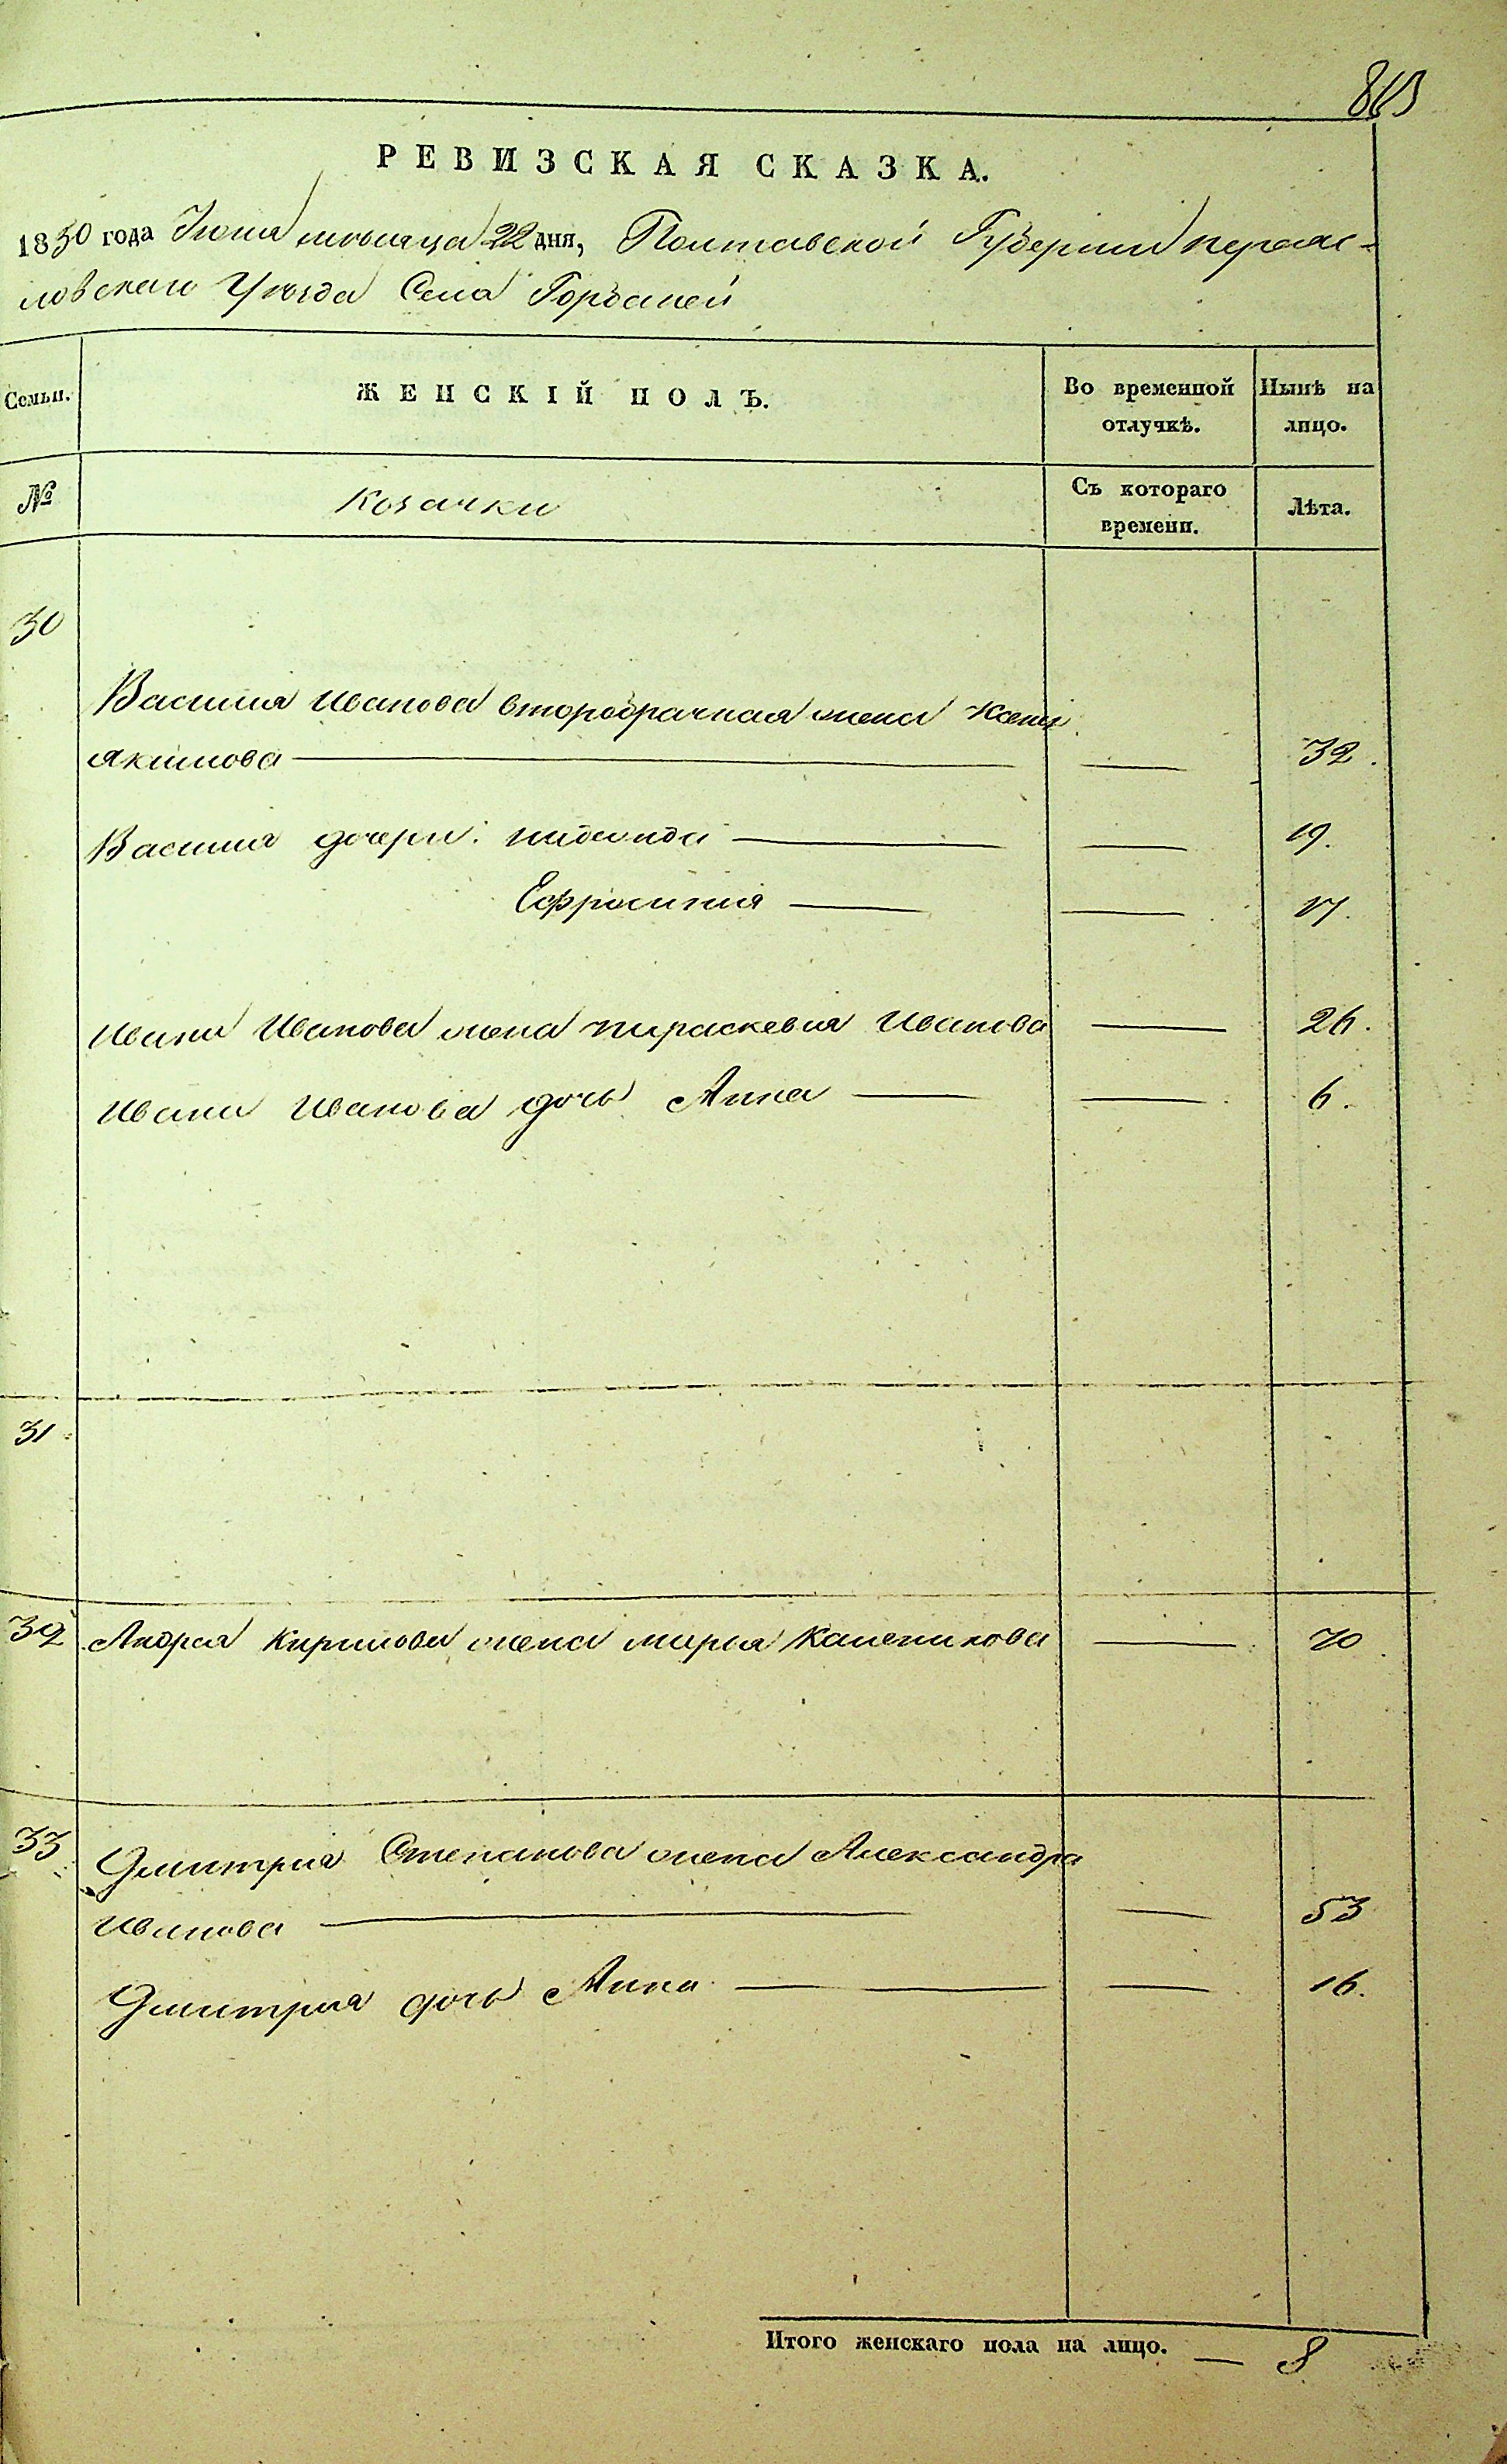 РЕВИЗСКАЯ СКАЗКА.
1850 года Июня месяца 22 дня, Полтавской Губернии переяс-
ловскаго Уезда Села Горбаней
Семьи.
ЖЕНСКІЙ ПОЛЪ.
Во временной отлучкѣ.
Нынѣ на лицо.
№
Козачки
Съ котораго времени.
Лѣта.
30
Василия Иванова второбрачная жена Ксения
Якимова 32.
Василия дочери: 19.
Ефросиния 17.
Ивана Иванова жена параскевия Иванова 26.
Ивана Иванова дочь Анна 6.
31
32 Андрея Кирилова жена марья 70
33 Дмитрия Степанова жена Александра
Иванова 53
Дмитрия дочь Анна 16.
Итого женскаго пола на лицо. 8